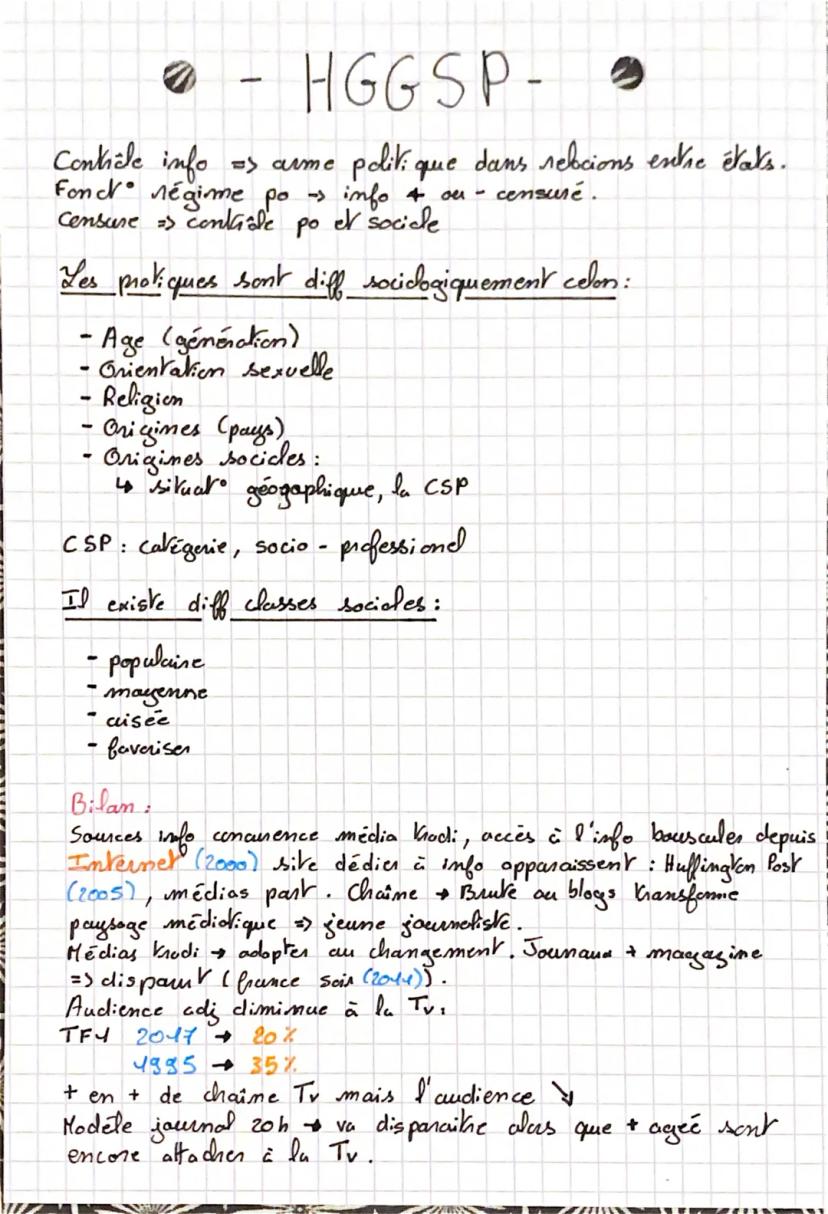 - HGGSP -
Contrôle info => arme politique dans relacions entre états.
Fonct° régime po -> info + ou - censuré.
Censure => contrôle po et sociale
Les pratiques sont diff sociologiquement celon :
- Age (génération)
- Orientation sexuelle
- Religion
- Origines (pays)
- Origines sociales :
↳ situat° géographique, la CSP
CSP : catégorie, socio - professionel
Il existe diff classes sociales :
- populaire
- moyenne
- aisée
- favoriser
Bilan :
Sources info concurence média tradi, accès à l'info bousculer depuis
Internet (2000) site dédier à info apparaissent : Huffington Post
(2005), médias part. Chaîne -> Brute ou blogs transforme
paysage médiatique => jeune journaliste.
Médias tradi -> adopter au changement. Jounaux + magazine
=> disparut (france soir (2011)).
Audience adj diminue à la Tv :
TF1 2017 -> 20%
1995 -> 35%
+ en + de chaîne Tv mais l'audience ↘
Modèle journal 20h -> va disparaitre alors que + ageé sont
encore attacher à la Tv.